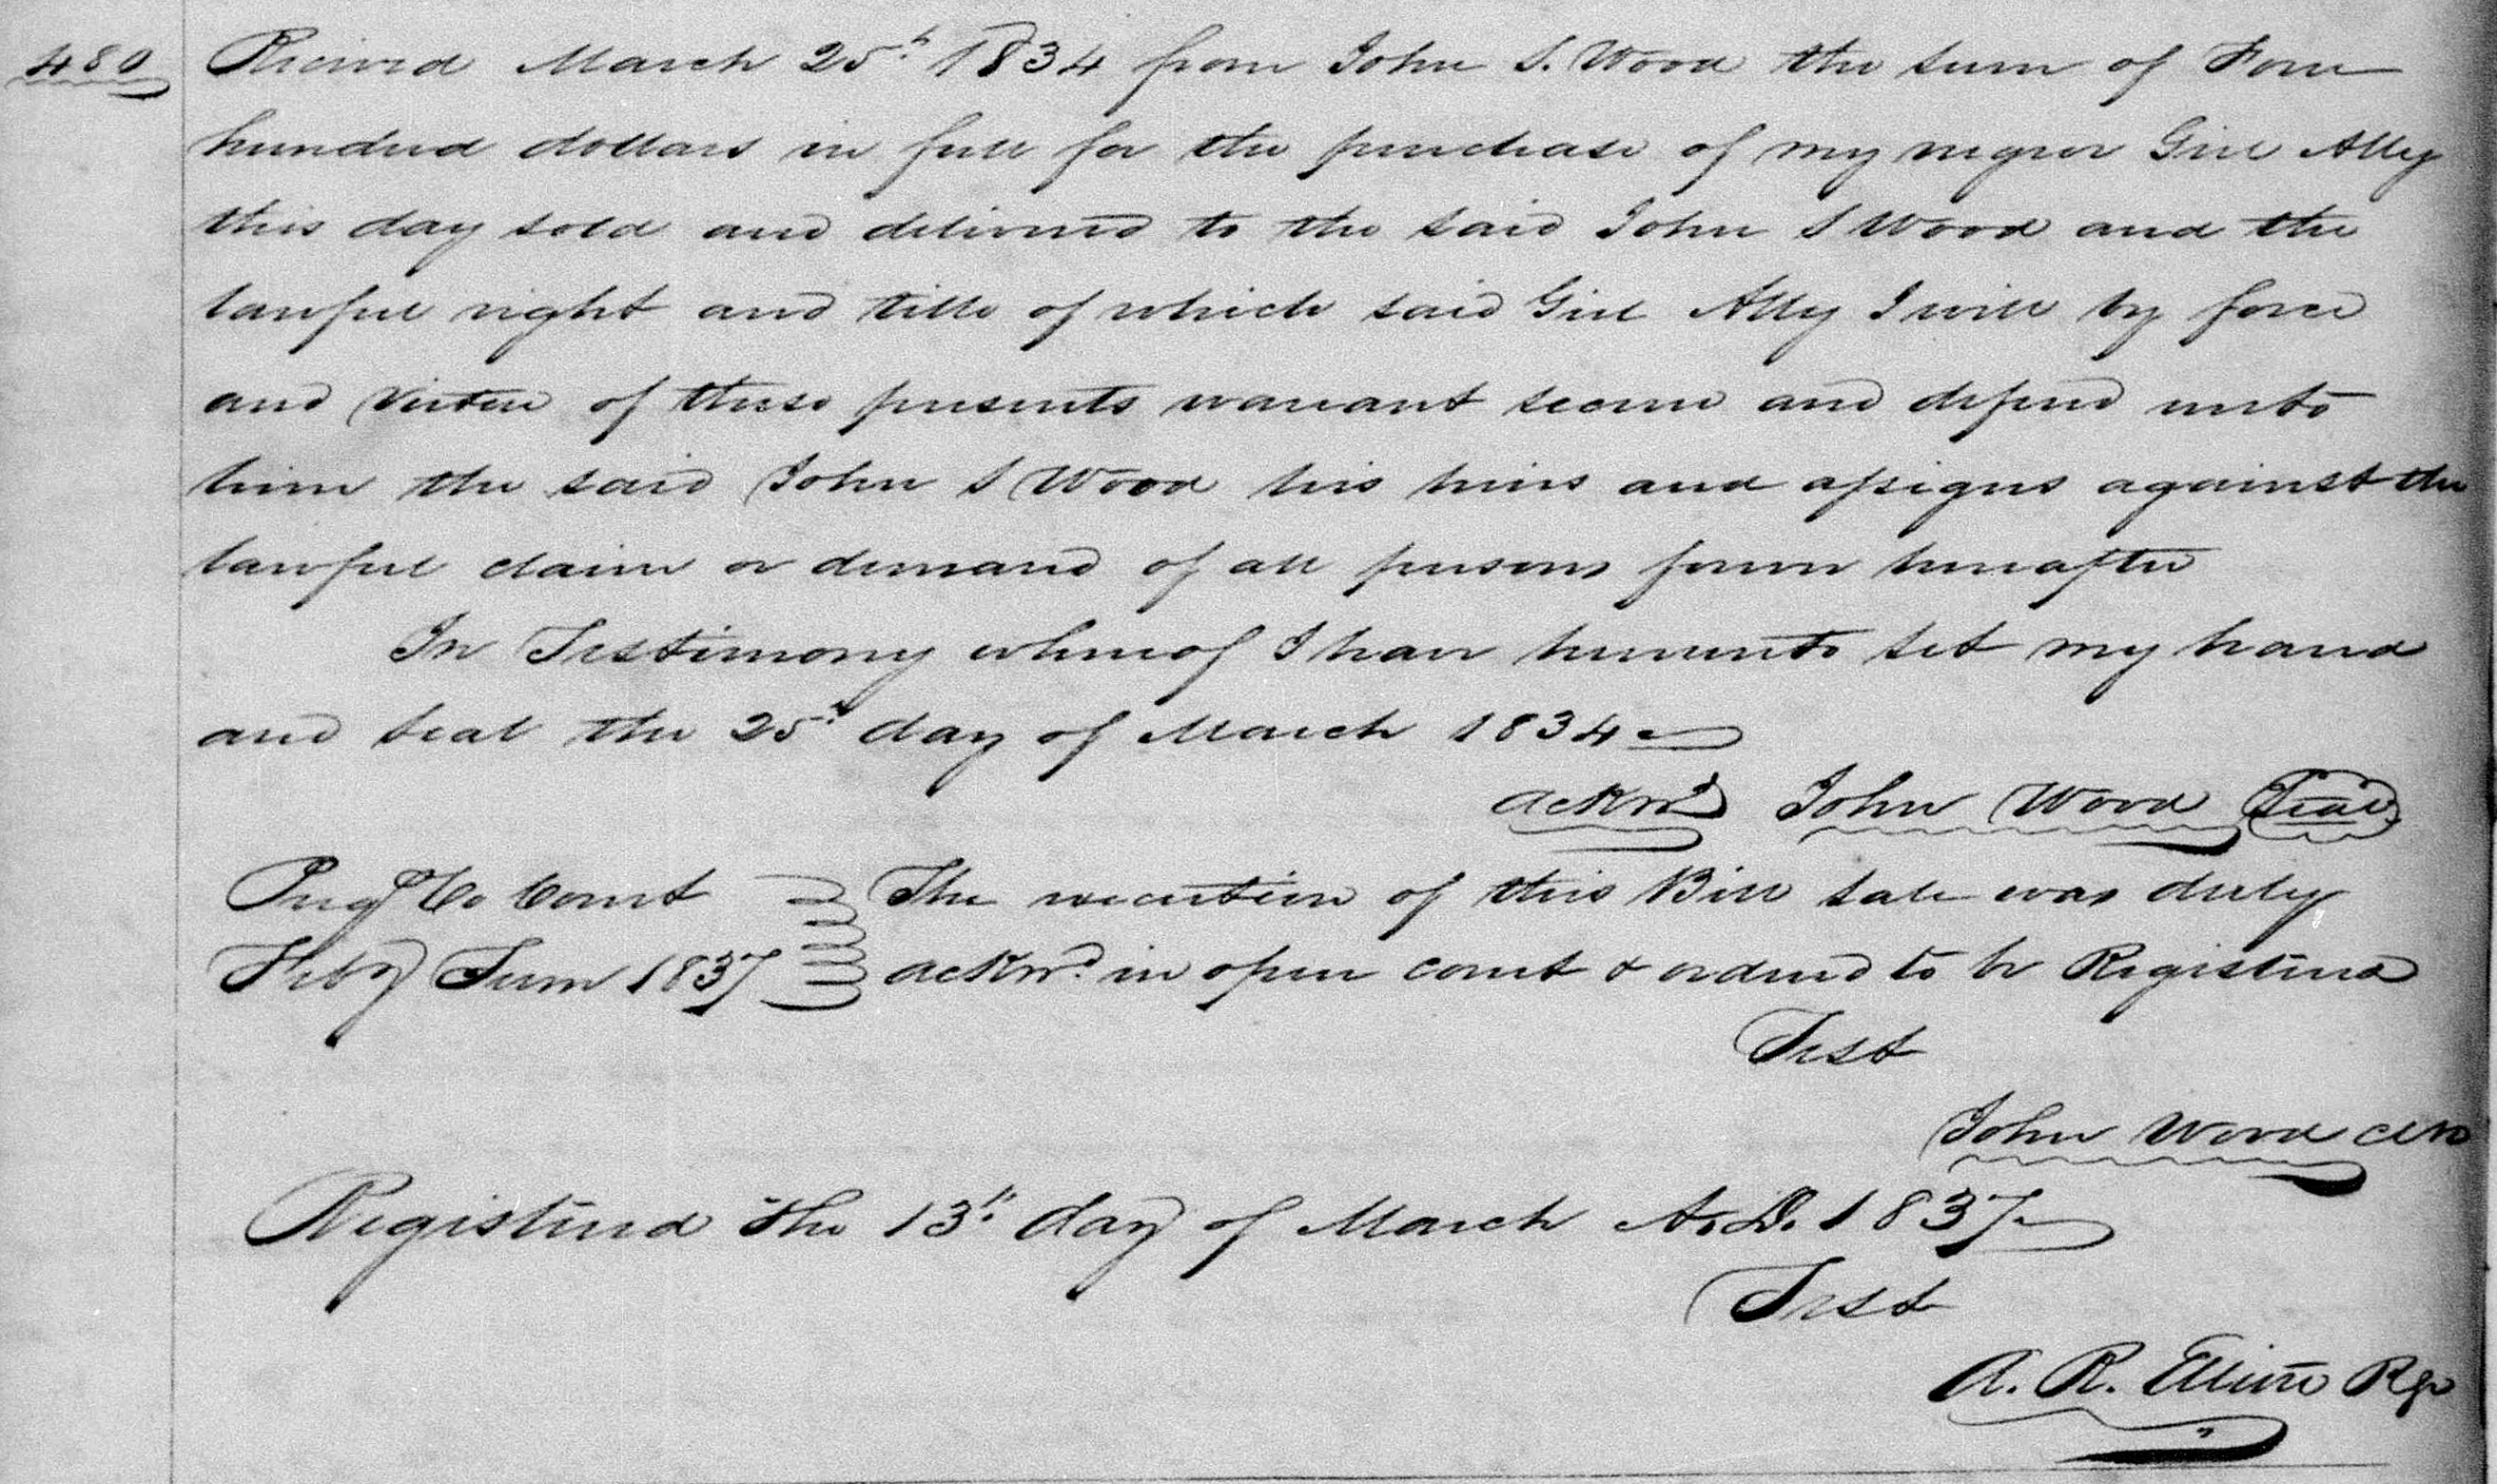 480
Received March 25th 1834 from John S. Wood the sum of Four
hundred dollars in full for the purchase of my negro Girl Ally
this day sold and delivered to the said John S Wood and the
lawful right and title of which said Girl Ally I will by force
and virtue of these presents warrant secure and defend unto
him the said John S Wood his heirs and assigns against the
lawful claim or demand of all persons forever hereafter
In Testimony whereof I have hereunto set my hand
and seal the 25th day of March 1834
acknd John Wood Seal
Pergs Co Court The execution of this Bill sale was duly
Feby Term 1837 acknd in open court & ordered to be Registered
Test
John Wood Clk
Registered the 13th day of March A.D. 1837
Test
A. R. Elliott Rgr